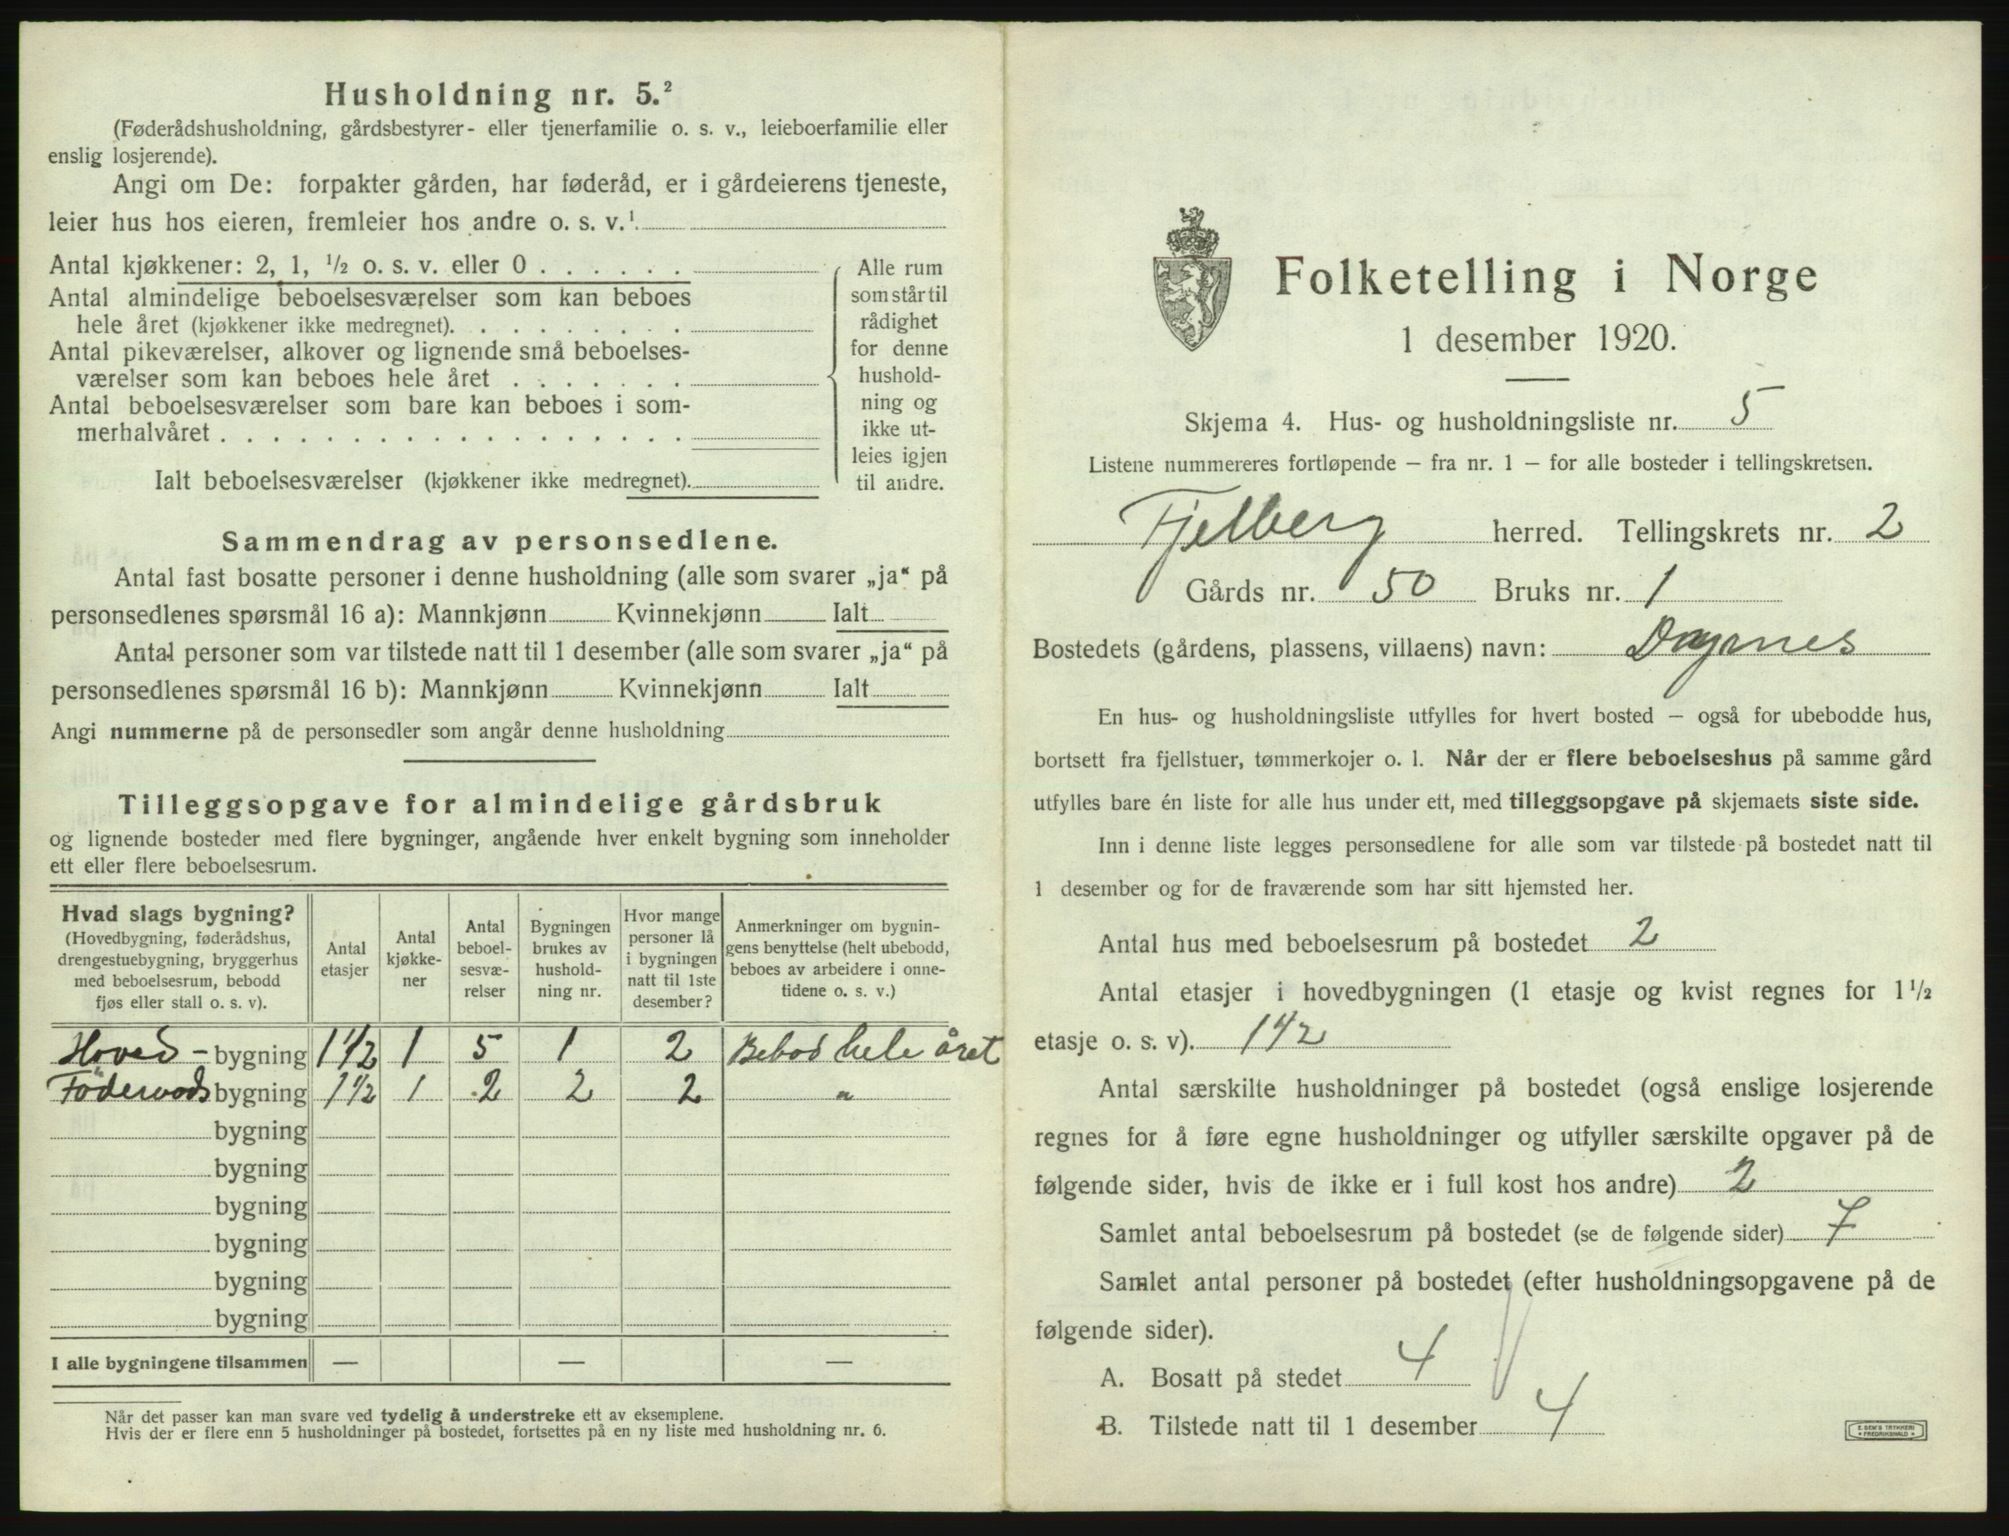 Husholdning nr. 5.²
(Føderådshusholdning, gårdsbestyrer- eller tjenerfamilie o. s. v., leieboerfamilie eller
enslig losjerende).
Angi om De: forpakter gården, har føderåd, er i gårdeierens tjeneste,
leier hus hos eieren, fremleier hos andre o. s. v.¹
Antal kjøkkener: 2, 1, ½ o. s. v. eller 0 . . . . . .
Antal almindelige beboelsesværelser som kan beboes
hele året (kjøkkener ikke medregnet). . . . . . . . .
Antal pikeværelser, alkover og lignende små beboelses-
værelser som kan beboes hele året . . . . . . .
Antal beboelsesværelser som bare kan beboes i som-
merhalvåret . . . . . . . . . . . . . . . . . .
Ialt beboelsesværelser (kjøkkener ikke medregnet).
Alle rum
som står til
rådighet
for denne
hushold-
ning og
ikke ut-
leies igjen
til andre.
Sammendrag av personsedlene.
Antal fast bosatte personer i denne husholdning (alle som svarer „ja“ på
personsedlenes spørsmål 16 a): Mannkjønn Kvinnekjønn Ialt
Antal personer som var tilstede natt til 1 desember (alle som svarer „ja“ på
personsedlenes spørsmål 16 b): Mannkjønn Kvinnekjønn Ialt
Angi nummerne på de personsedler som angår denne husholdning
Tilleggsopgave for almindelige gårdsbruk
og lignende bosteder med flere bygninger, angående hver enkelt bygning som inneholder
ett eller flere beboelsesrum.
Hvad slags bygning?
(Hovedbygning, føderådshus,
drengestuebygning, bryggerhus
med beboelsesrum, bebodd
fjøs eller stall o. s. v).
Antal
etasjer
Antal
kjøkke-
ner
Antal
beboel-
sesvæ-
relser
Bygningen
brukes av
hushold-
ning nr.
Hvor mange
personer lå
i bygningen
natt til 1ste
desember?
Anmerkninger om bygnin-
gens benyttelse (helt ubebodd,
beboes av arbeidere i onne-
tidene o. s. v.)
Hoved- bygning 1 1/2 1 5 1 2 Bebod hele året
Föderaads bygning 1 1/2 1 2 2 2 "
bygning
bygning
bygning
bygning
bygning
bygning
I alle bygningene tilsammen — — —
Når det passer kan man svare ved tydelig å understreke ett av eksemplene.
Hvis der er flere enn 5 husholdninger på bostedet, fortsettes på en ny liste med husholdning nr. 6.
Folketelling i Norge
1 desember 1920.
Skjema 4. Hus- og husholdningsliste nr. 5
Listene nummereres fortløpende – fra nr. 1 – for alle bosteder i tellingskretsen.
Fjelberg herred. Tellingskrets nr. 2
Gårds nr. 50 Bruks nr. 1
Bostedets (gårdens, plassens, villaens) navn:
En hus- og husholdningsliste utfylles for hvert bosted – også for ubebodde hus,
bortsett fra fjellstuer, tømmerkojer o. l. Når der er flere beboelseshus på samme gård
utfylles bare én liste for alle hus under ett, med tilleggsopgave på skjemaets siste side.
Inn i denne liste legges personsedlene for alle som var tilstede på bostedet natt til
1 desember og for de fraværende som har sitt hjemsted her.
Antal hus med beboelsesrum på bostedet 2
Antal etasjer i hovedbygningen (1 etasje og kvist regnes for 1½
etasje o. s. v). 1 1/2
Antal særskilte husholdninger på bostedet (også enslige losjerende
regnes for å føre egne husholdninger og utfyller særskilte opgaver på de
følgende sider, hvis de ikke er i full kost hos andre) 2
Samlet antal beboelsesrum på bostedet (se de følgende sider) 7
Samlet antal personer på bostedet (efter husholdningsopgavene på de
følgende sider).
A. Bosatt på stedet 4
B. Tilstede natt til 1 desember 4
E. SEM'S TRYKKERI
FREDRIKSHALD